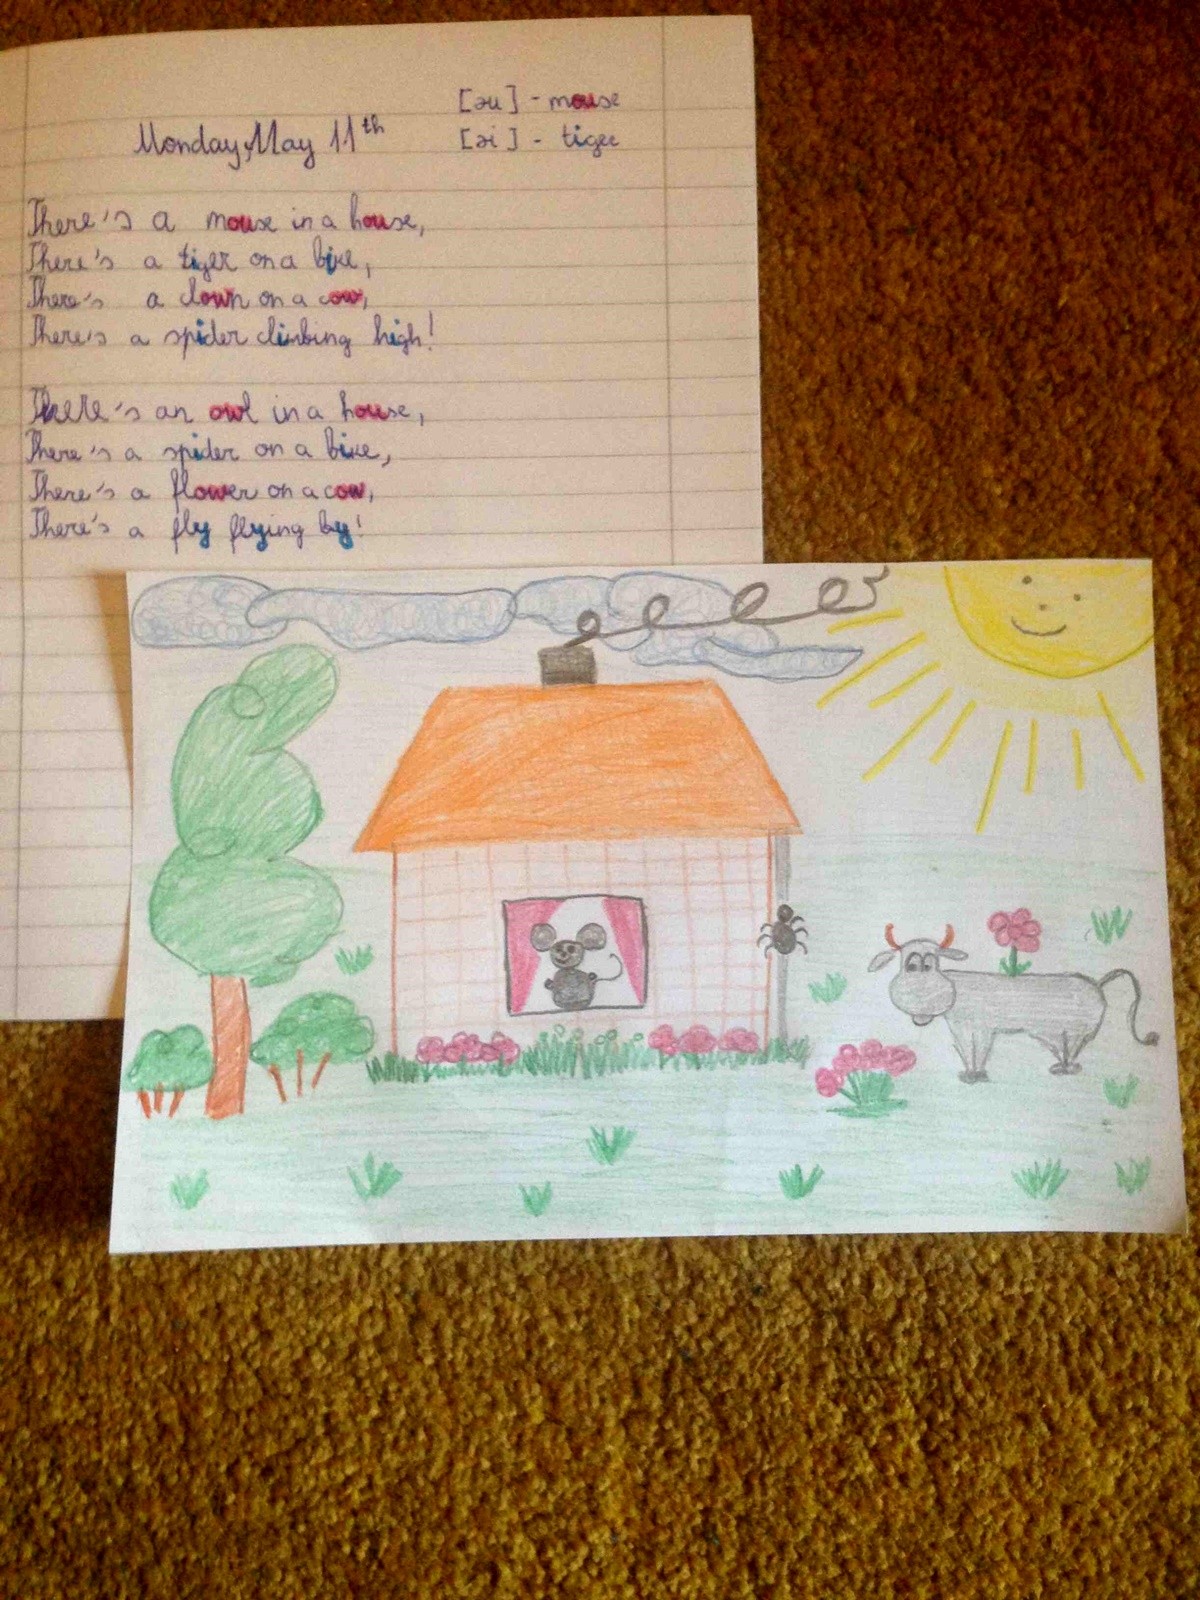 [əu] - mouse
Monday, May 11th
[əi] - tiger
There's a mouse in a house,
There's a tiger on a bike,
There's a clown on a cow,
There's a spider climbing high!
There's an owl in a house,
There's a spider on a bike,
There's a flower on a cow,
There's a fly flying by!